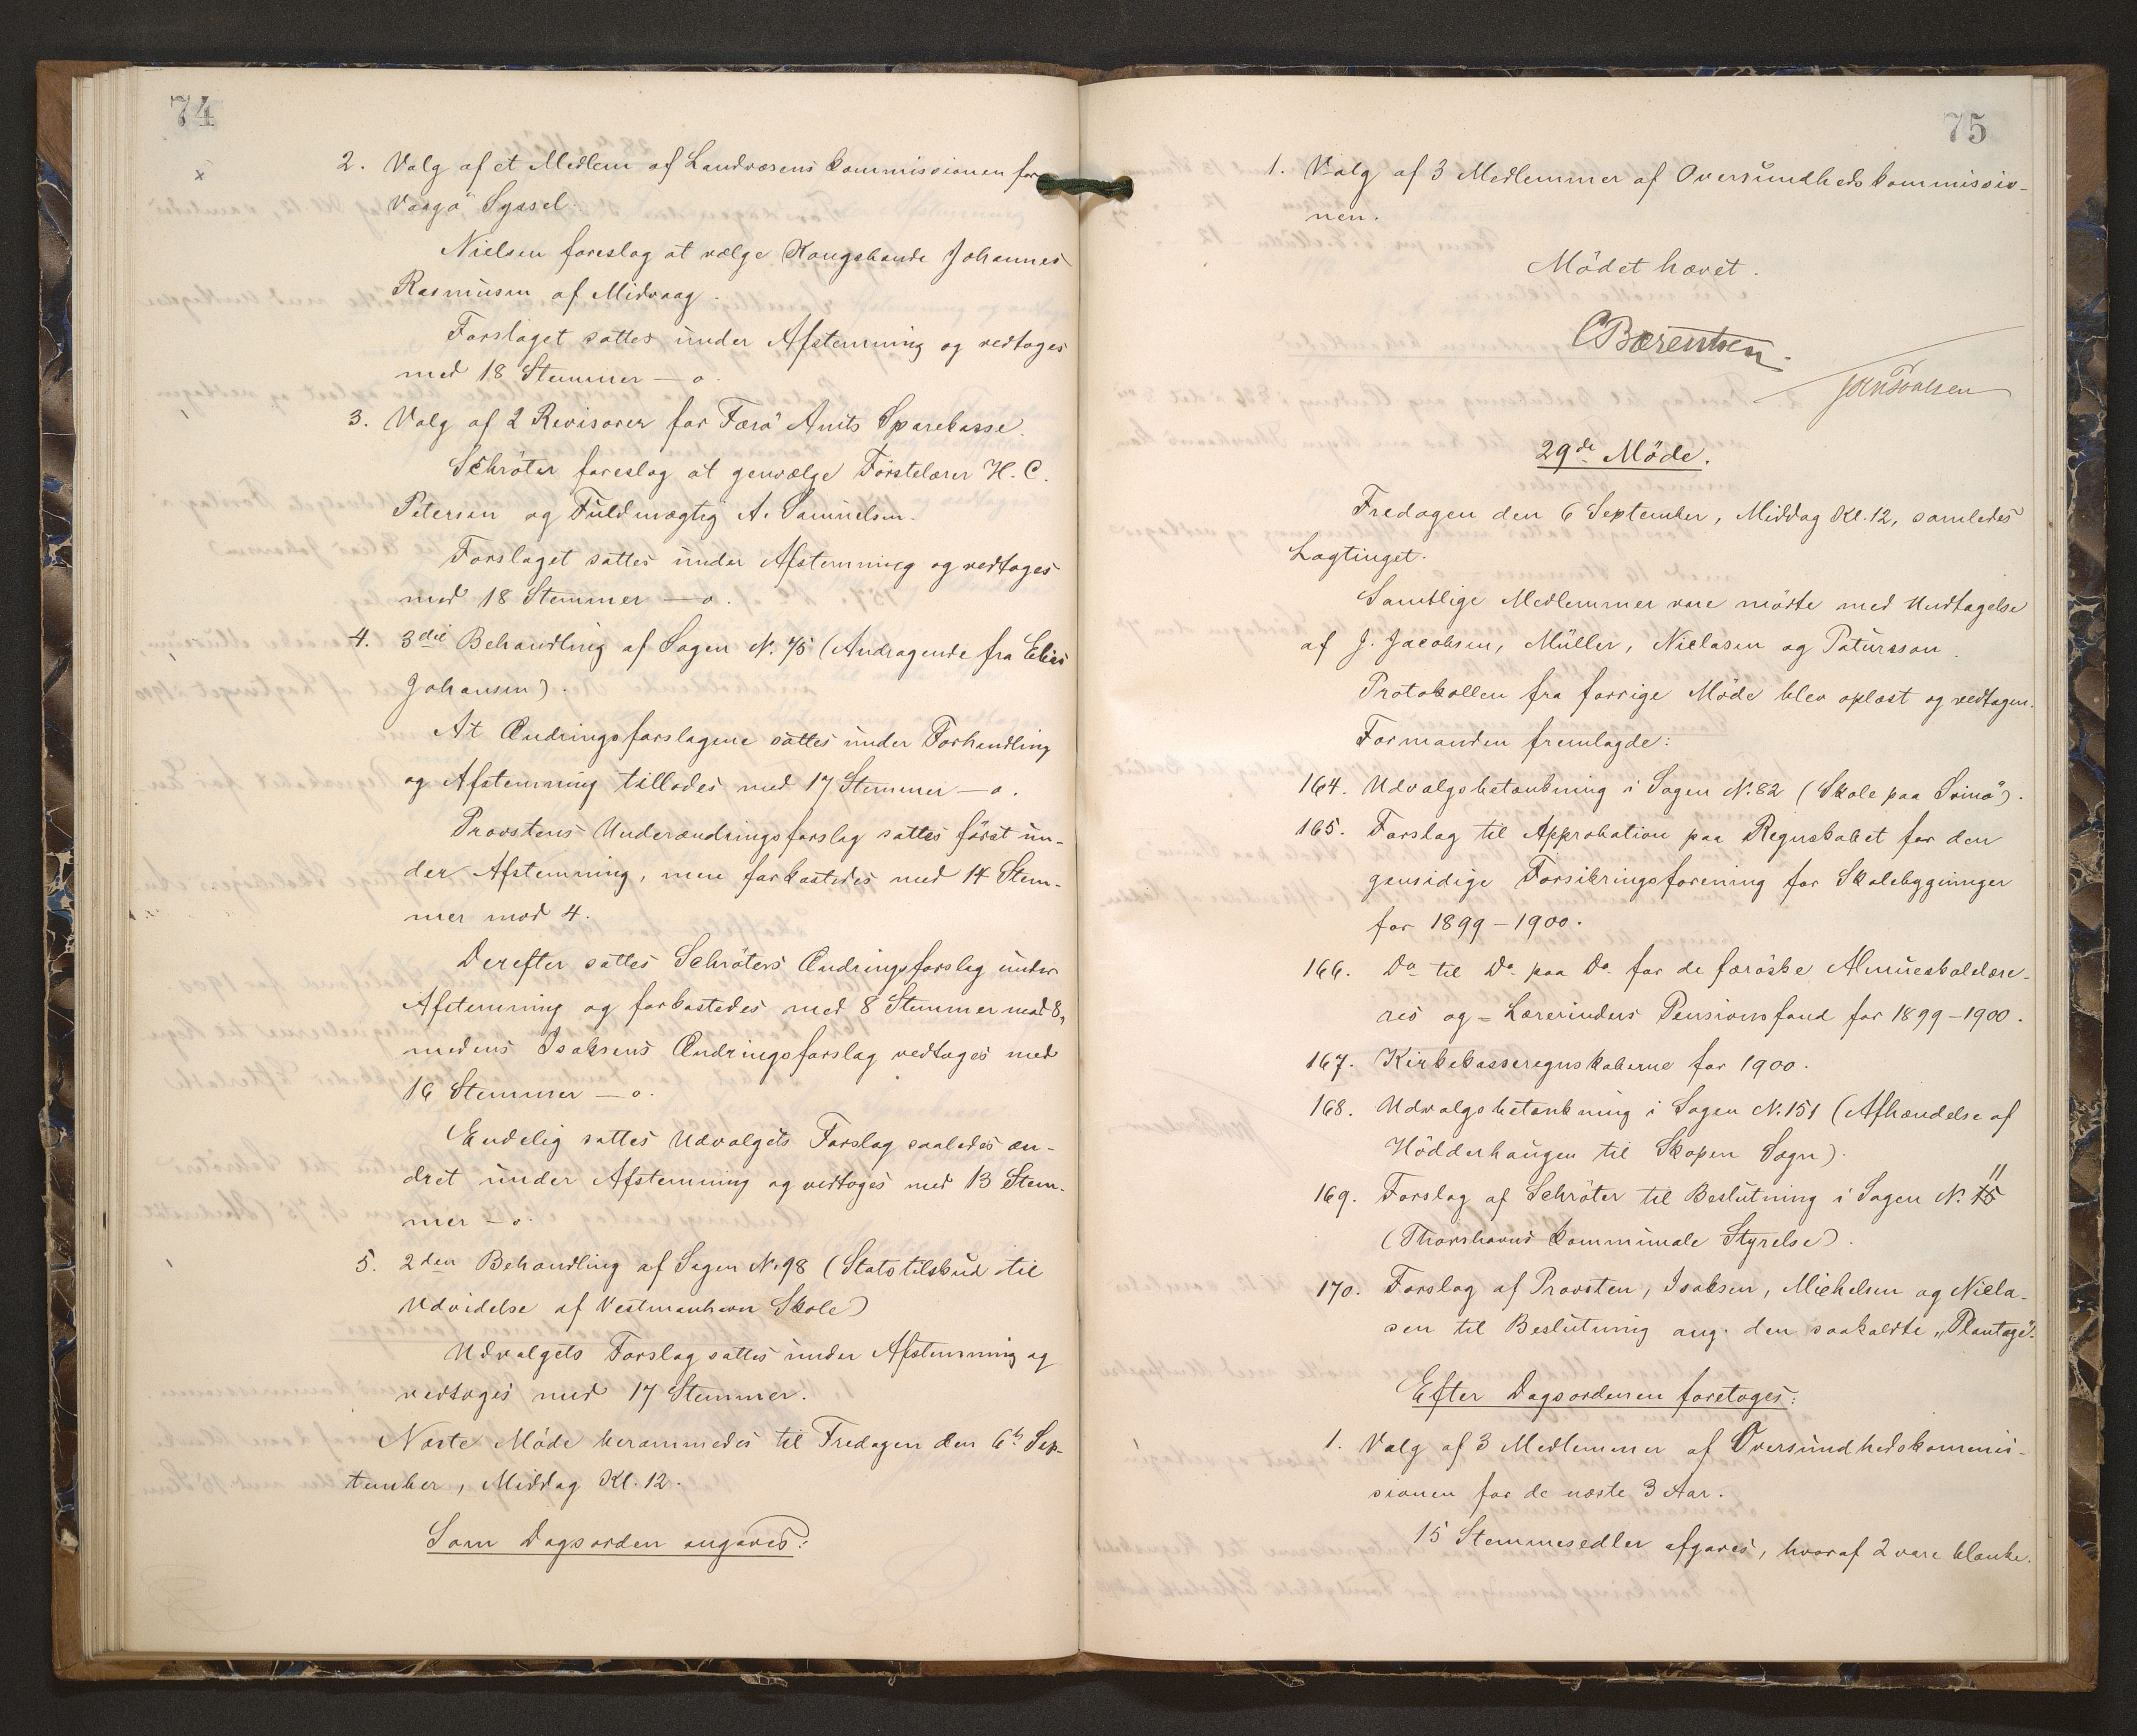 74
2. Valg af et Medlem af Landvæsenskommissionen for
Vaagø Syssel.
Nielsen foreslog at vælge Kongsbonde Johannes
Rasmusen af Midvaag.
Forslaget sattes under Afstemning og vedtoges
med 18 Stemmer — o.
3. Valg af 2 Revisorer for Færø Amts Sparekasse.
Schrøter foreslog at genvælge Førstelærer H. C.
Petersen og Fuldmægtig A. Samuelsen.
Forslaget sattes under Afstemning og vedtoges
med 18 Stemmer — o.
4. 3die Behandling af Sagen N. 75 (Andragende fra Elias
Johansen).
At Ændringsforslagene sattes under Forhandling
og Afstemning tillodes med 17 Stemmer — o.
Provstens Underændringsforslag sattes först un-
der Afstemning, men forkastedes med 14 Stem-
mer mod 4.
Derefter sattes Schröters Ændringsforslag under
Afstemning og forkastedes med 8 Stemmer mod 8,
medens Isaksens Ændringsforslag vedtoges med
16 Stemmer — o.
Endelig sattes Udvalgets Forslag saaledes æn-
dret under Afstemning og vedtoges med 13 Stem-
mer — o.
5. 2den Behandling af Sagen N. 98 (Statstilskud til
Udvidelse af Vestmanhavn Skole)
Udvalgets Forslag sattes under Afstemning og
vedtoges med 17 Stemmer.
Næste Möde berammedes til Fredagen den 6te Sep-
tember, Middag Kl. 12.
Som Dagsorden angaves:
75
1. Valg af 3 Medlemmer af Oversundhedskommissio-
nen.
Mödet hævet.
CBærentsen.
29de Möde.
Fredagen den 6 September, Middag Kl. 12, samledes
Lagtinget.
Samtlige Medlemmer vare mödte med Undtagelse
af J. Jacobsen, Müller, Nielasen og Patursson.
Protokollen fra forrige Möde blev oplæst og vedtagen.
Formanden fremlagde:
164. Udvalgsbetænkning i Sagen N. 82 (Skole paa Svinö).
165. Forslag til Approbation paa Regnskabet for den
gensidige Forsikringsforening for Skolebygninger
for 1899-1900.
166. Do til Do paa Do for de færöske Almueskolelære-
res og = Lærerinders Pensionsfond for 1899-1900.
167. Kirkekasseregnskaberne for 1900.
168. Udvalgsbetænkning i Sagen N. 151 (Afhændelse af
Hödderhaugen til Skopen Sogn).
169. Forslag af Schröter til Beslutning i Sagen N. 11
(Thorshavns kommunale Styrelse).
170. Forslag af Provsten, Isaksen, Michelsen og Niela-
sen til Beslutning ang. den saakaldte „Plantage".
Efter Dagsordenen foretoges:
1. Valg af 3 Medlemmer af Oversundhedskommis-
sionen for de næste 3 Aar.
15 Stemmesedler afgaves, hvoraf 2 vare blanke.